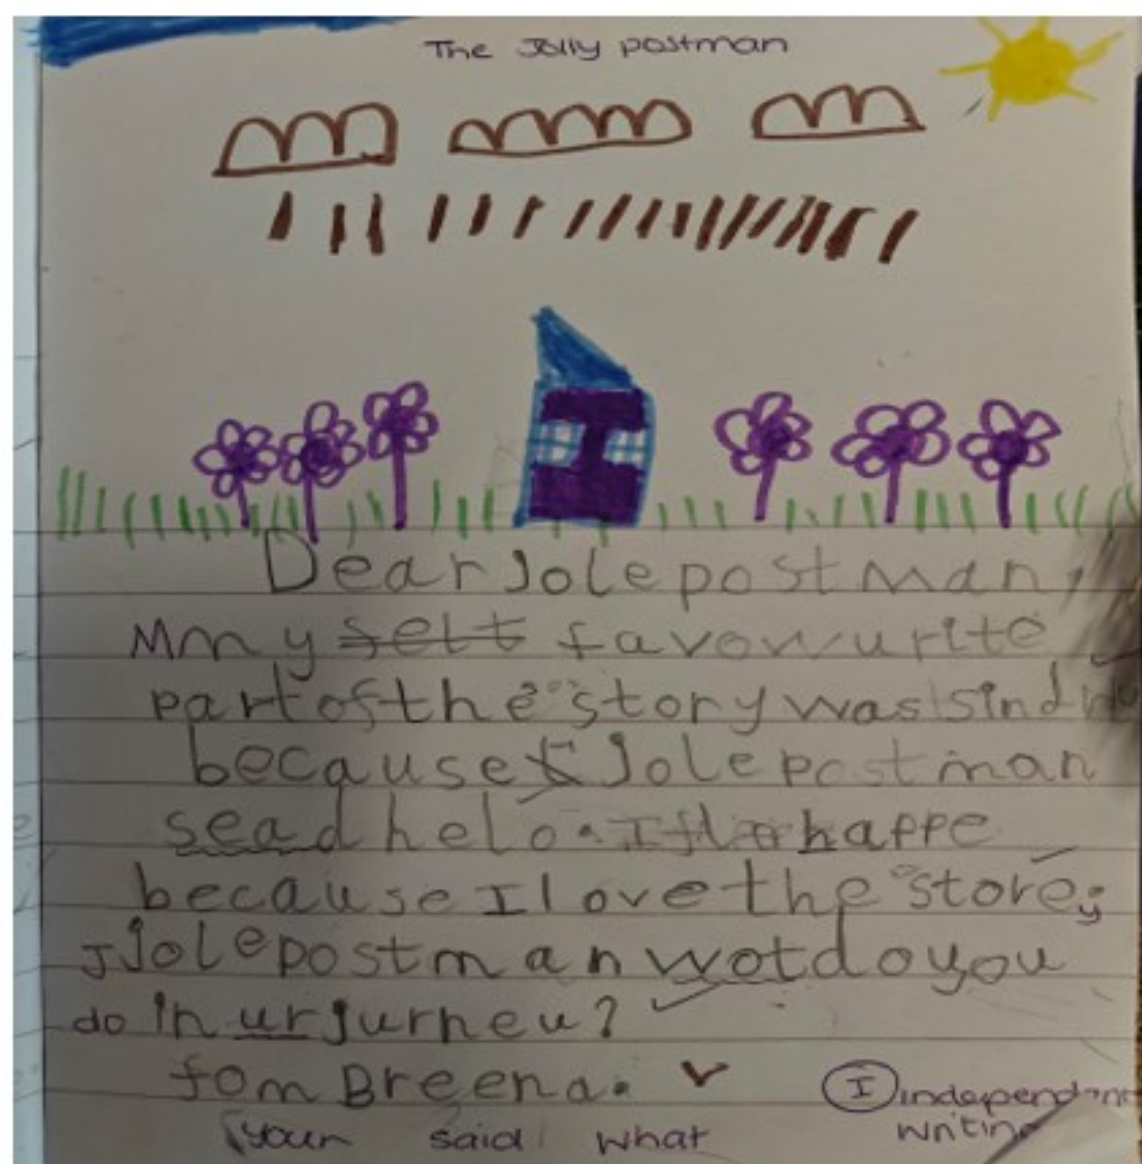 The Jolly postman
Dear Jole postman,
Mmy selt favowurite
part of the story was sind
because Jole postman
sead helo. I happe
because I love the store y
Jjole postman wot do you
do in ur jurneu?
fom Breena.
I independant
writing
your said what